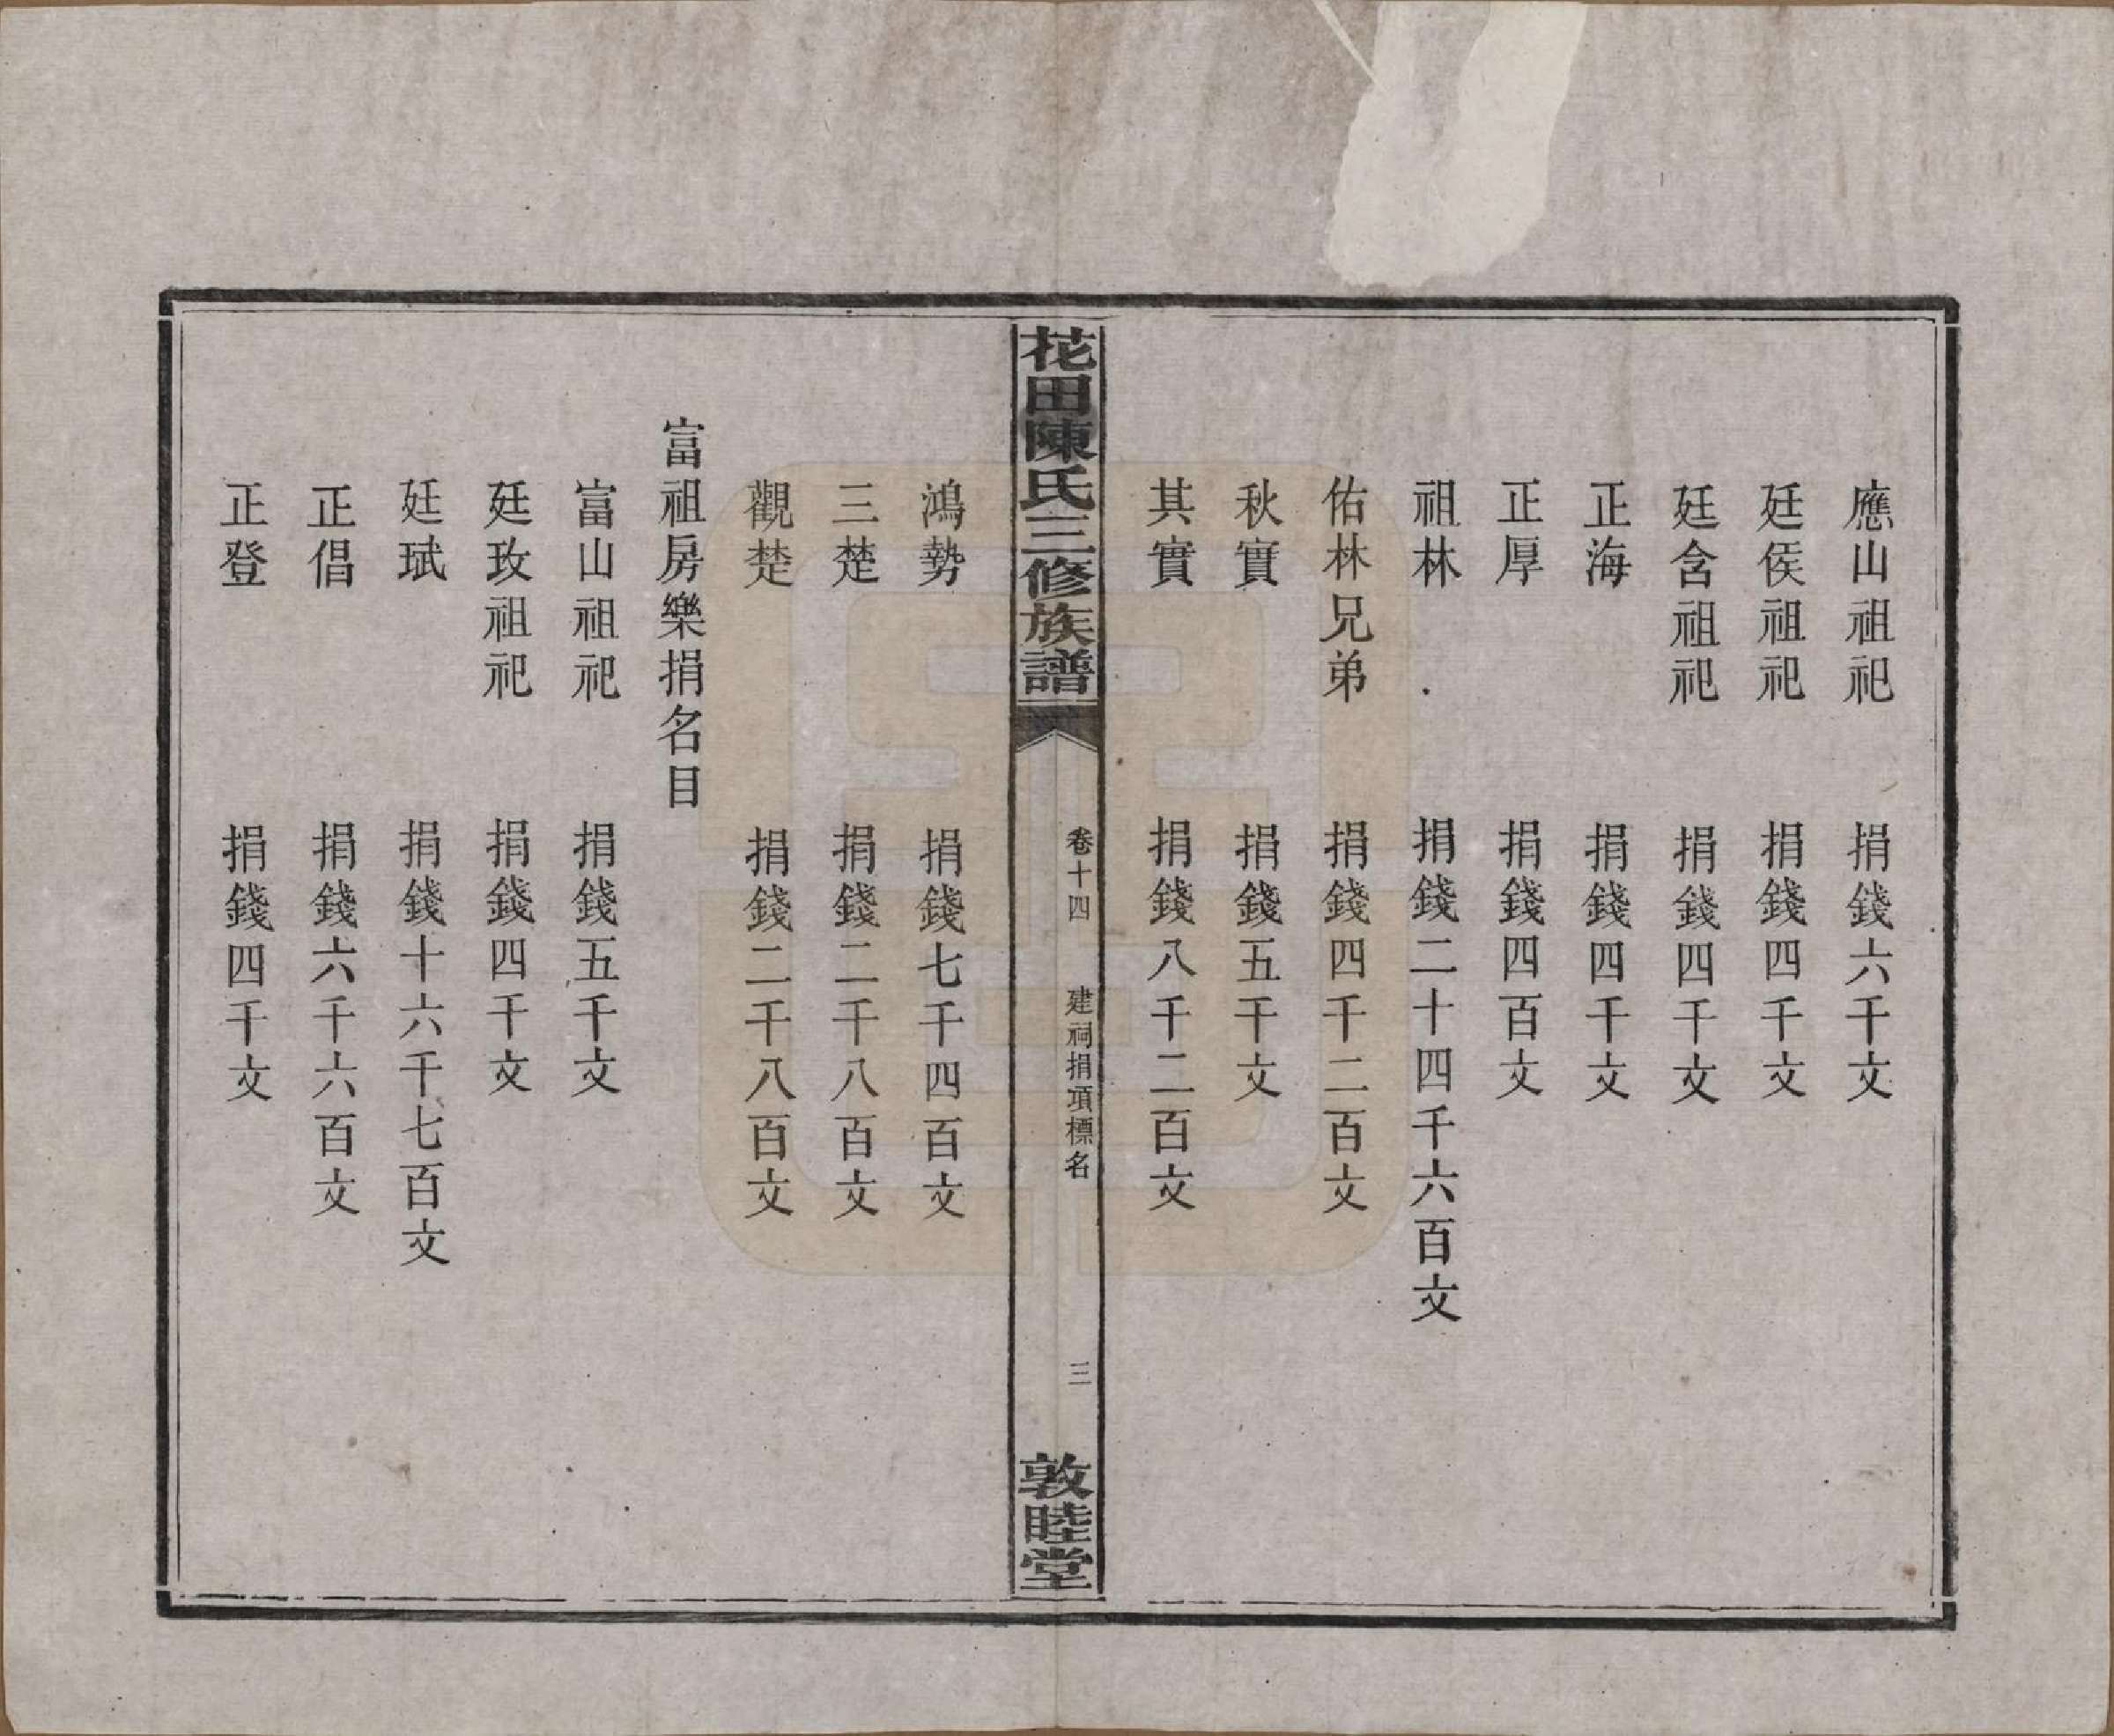 應山祖祀 捐錢六千文
廷侯祖祀 捐錢四千文
廷含祖祀 捐錢四千文
正海 捐錢四千文
正厚 捐錢四百文
祖林 捐錢二十四千六百文
佑林兄弟 捐錢四千二百文
秋實 捐錢五千文
其實 捐錢八千二百文
花田陳氏三修族譜
卷十四 建祠捐項標名 三
敦睦堂
鴻勢 捐錢七千四百文
三楚 捐錢二千八百文
觀楚 捐錢二千八百文
富祖房樂捐名目
富山祖祀 捐錢五千文
廷玫祖祀 捐錢四千文
廷珷 捐錢十六千七百文
正倡 捐錢六千六百文
正登 捐錢四千文